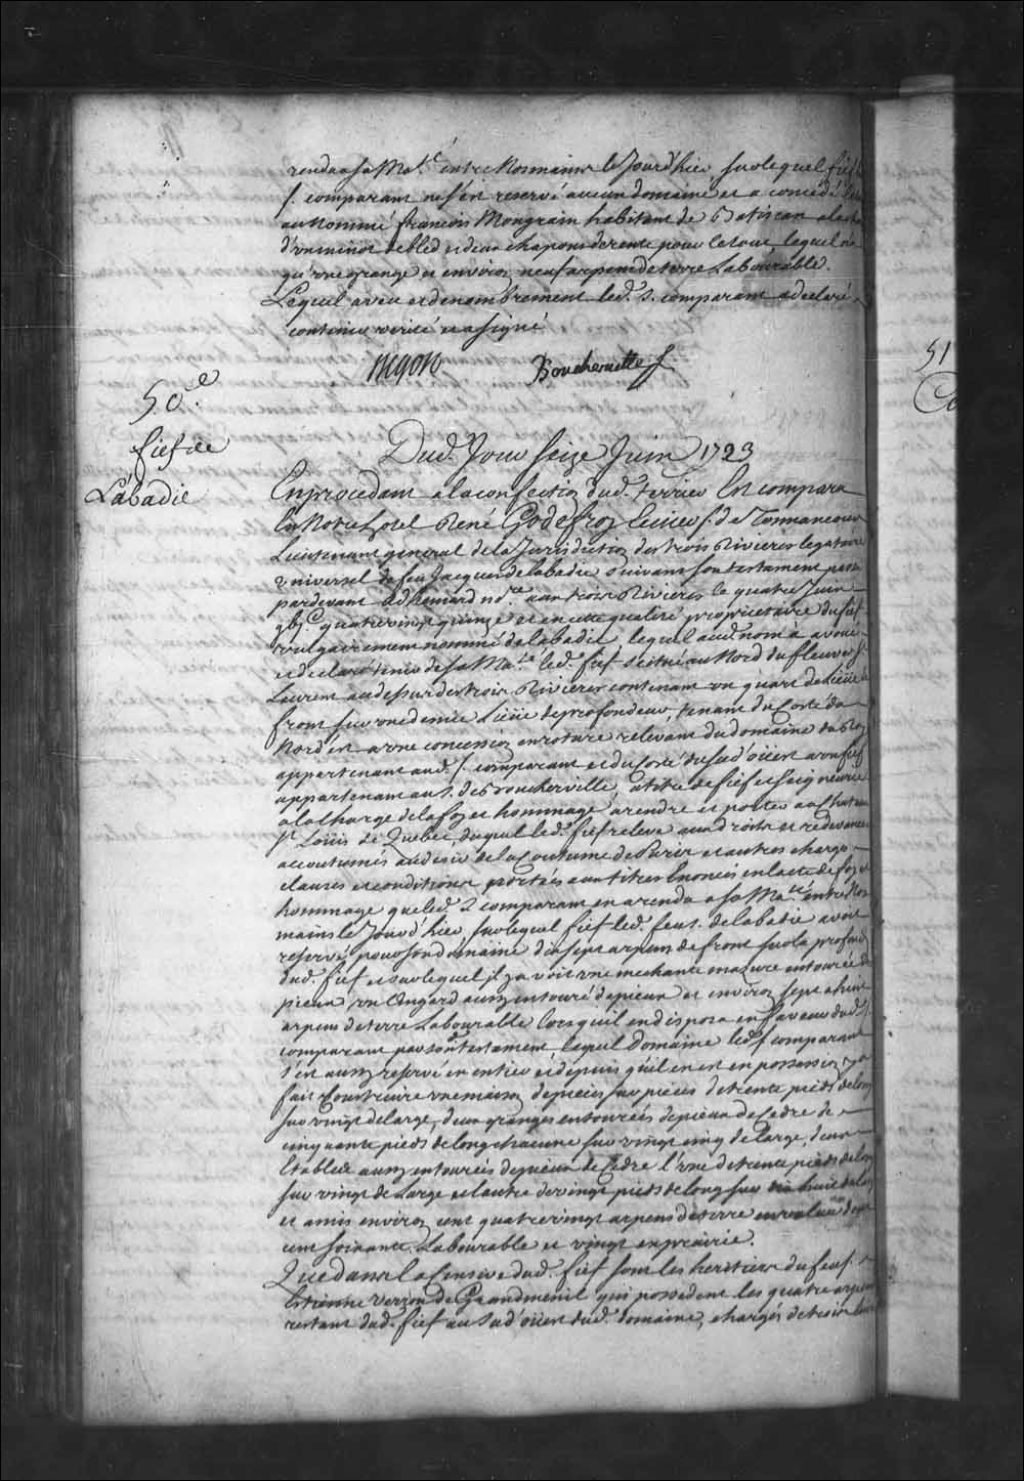 rendu a sa Ma.té entre Nos mains le Jourd'hier sur lequel fief le
S. comparant ne s'est reservé aucun domaine et a concedé
au nommé françois Mongrain habitant de Batiscan a la
d'un minot de bled et deux chapons de rente pour le tout, lequel a
qu'une grange et environ neuf arpens de terre Labourable.
Lequel aveu et denombrement led. S. comparant a declaré
contenir verité et a signé
Begon Boucherville f
50.e
fief de
Labadie
Dud. Jour seize Juin 1723
En procedant a la confection dud. terrier Est comparu
En Notre hotel René Godefroy Ecuier S. de Tonnancour
Lieutenant general de la Jurisdiction des trois Rivieres legataire
universel de feu Jacques de labadie suivant son testament passé
pardevant Adhemard no.re aux trois Rivieres le quatre Juin
gbj.c quatrevingt quinze et en cette qualité proprietaire du fief
vulgairement nommé de labadie lequel aud. nom a avoué
et declaré tenir de sa Ma.té led. fief scitué au Nord du fleuve S.
Laurent au dessus des trois Rivieres contenant un quart de Lieüe de
front sur une demie Lieüe de profondeur, tenant du Costé du
Nord'est a une concession en roture relevant du domaine du Roy
appartenant aud. S. comparant et du Costé du Sud'oüest a un fief
appartenant au S. de Boucherville, a titre de fief et seigneurie
a la charge de la foy et hommage a rendre et porter au Chateau
S.t Loüis de Quebec, duquel led. fief releve aux droits et redevances
accoutumés au desir de la Coutume de Paris et autres charges
clauses et conditions portées aux titres Enoncés en l'acte de foy et
hommage que led. S. comparant en a rendu a sa Ma.té entre Nos
mains le Jourd'hier, sur lequel fief led. feu S. de labadie avoit
reservé pour son domaine dix sept arpens de front sur la profondeur
dud. fief et sur lequel jl y avoit une mechante mazure entourée de
pieux, un Angard aussy entouré de pieux et environ sept a huit
arpens de terre Labourable lorsqu'il en disposa en faveur dud. S.
comparant par son testament, lequel Domaine led. S. comparant
s'est aussy reservé en entier et depuis qu'il en est en possession y a
fait Construire une maison de pieces sur pieces de trente pieds de long
sur vingt de large, deux granges entourées de pieux de Cedre de
cinquante pieds de long chacune sur vingt cinq de large, deux
Etables aussy entourées de pieux de Cedre l'une de trente pieds de long
sur vingt de Large et l'autre de vingt pieds de long sur dix huit de large
et a mis environ cent quatrevingt arpens de terre en valeur dont
cent soixante Labourable et vingt en prairie.
Que dans la Censive dud. fief sont les heritiers du feu S.
Estienne Verron de Grandmenil qui possedent les quatre arpens
restant dud. fief au Sud'oüest dud. domaine, chargés de trois
51